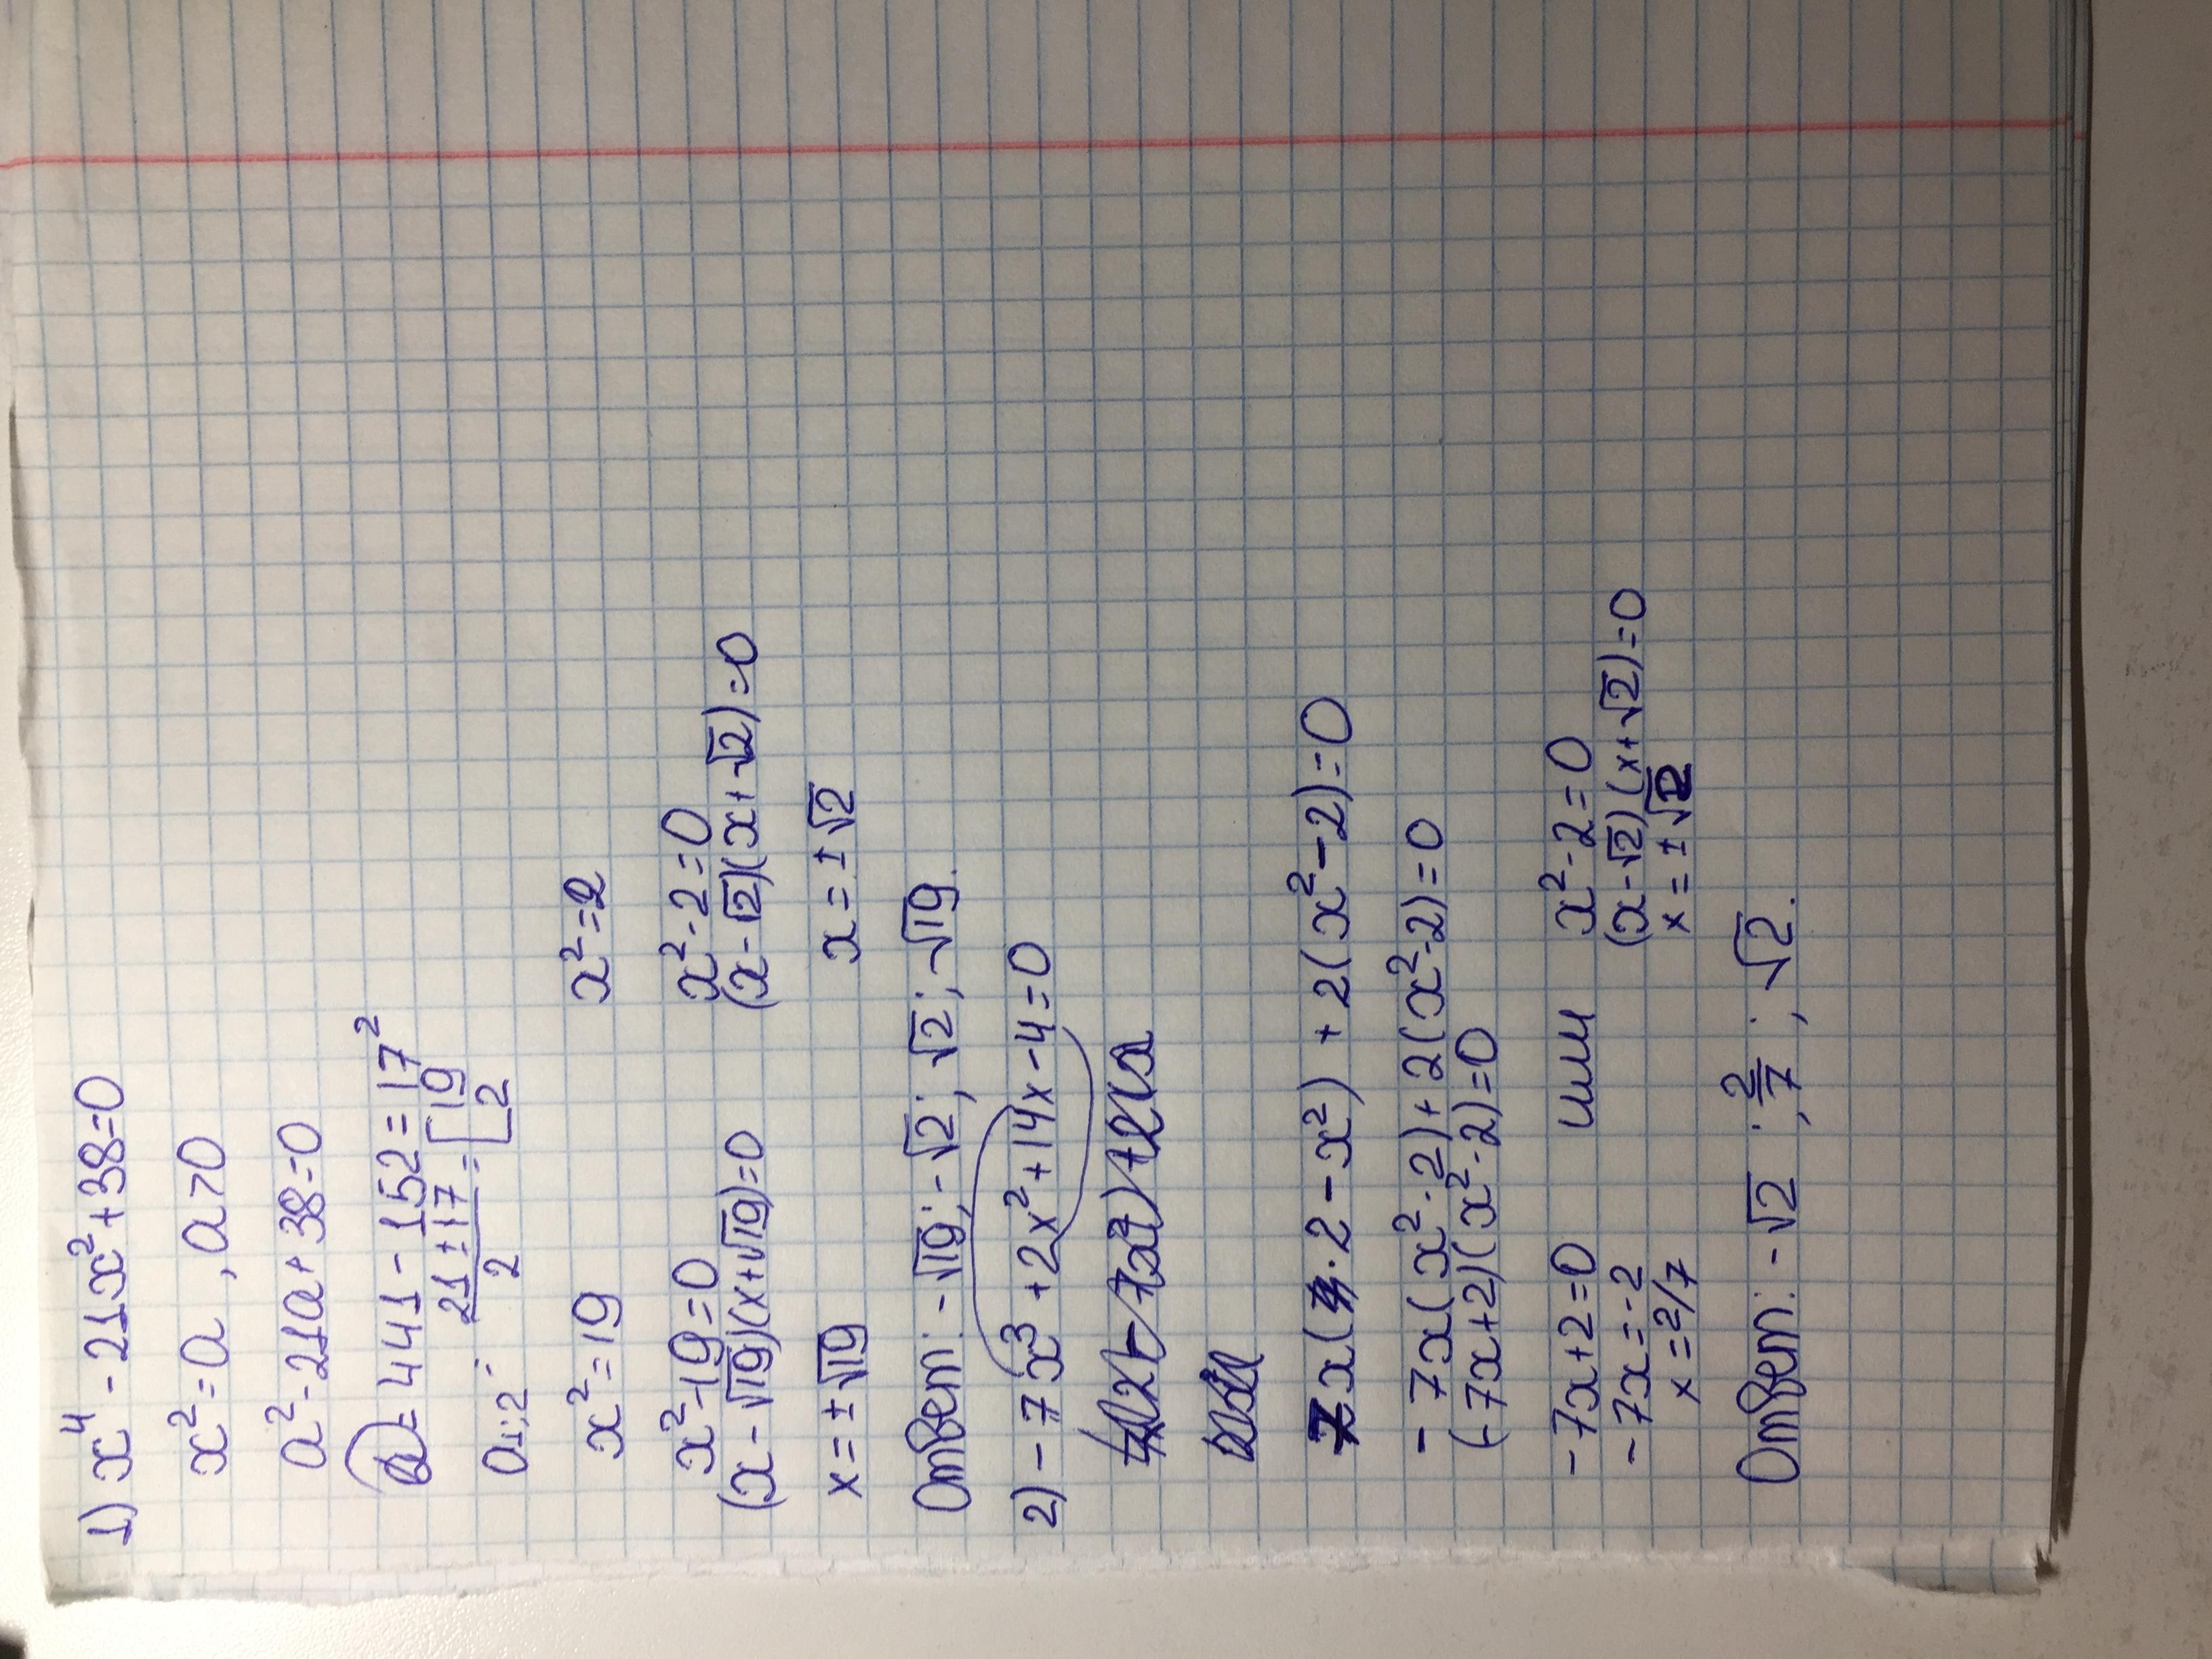 1) x⁴ - 21x² + 38 = 0
x² = a , a > 0
a² - 21a + 38 = 0
D = 441 - 152 = 17²
a₁;₂ = (21 ± 17)/2 = [19 2
x² = 19 x² = 2
x² - 19 = 0 x² - 2 = 0
(x - √19)(x + √19) = 0 (x - √2)(x + √2) = 0
x = ± √19 x = ± √2
Ответ: -√19; -√2; √2; √19.
2) - 7x³ + 2x² + 14x - 4 = 0
7x( · 2 - x²) + 2(x² - 2) = 0
- 7x(x² - 2) + 2(x² - 2) = 0
(-7x + 2)(x² - 2) = 0
-7x + 2 = 0 или x² - 2 = 0
-7x = -2 (x - √2)(x + √2) = 0
x = 2/7 x = ± √2
Ответ: -√2 ; 2/7 ; √2.